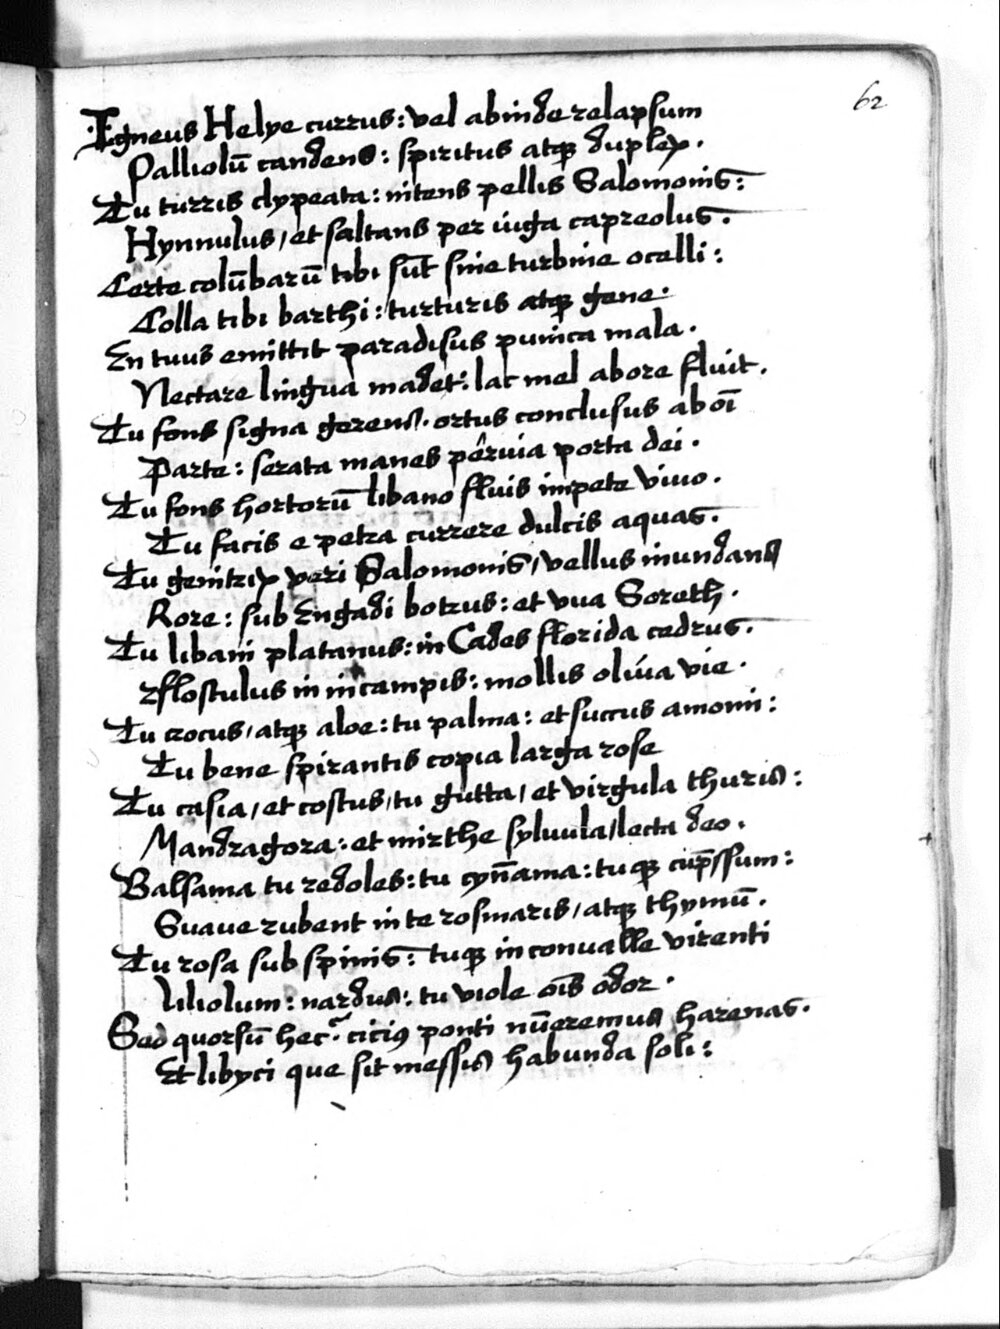 62
Igneus Helye currus: vel abinde relapsum
Palliolū candens: spiritus atqꝫ duplex.
Tu turris clypeata: nitens pellis Salomonis:
Hynnulus, et saltans per iuga capreolus.
Certe colūbarū tibi sūt sine turbine ocelli:
Colla tibi barthi: turturis atqꝫ gene.
En tuus emittit paradisus punica mala.
Nectare lingua madet: lac mel abore fluit.
Tu fons signa gerens. ortus conclusus ab oī
Parte: serata manes pêruia porta dei.
Tu fons hortorū libano fluis impete viuo.
Tu facis e petra currere dulcis aquas.
Tu genitrix veri Salomonis, vellus inundans
Rore: sub Engadi botrus: et vua Soreth.
Tu libani platanus: in Cades florida cedrus.
flostulus in in campis: mollis oliua vie.
Tu crocus, atqꝫ aloe: tu palma: et succus amomi:
Tu bene spirantis copia larga rose
Tu casia, et costus, tu gutta, et virgula thuris:
Mandragora: et mirthe syluula, lecta deo.
Balsama tu redoles: tu cyn̄ama: tuqꝫ cup̄ssum:
Suaue rubent in te rosmaris, atqꝫ thymū.
Tu rosa sub spinis: tuqꝫ in conualle virenti
liliolum: nardus: tu viole oīs odor.
Sed quorsū hec? citiꝰ ponti nūeremus harenas.
Et libyci que sit messis habunda soli: